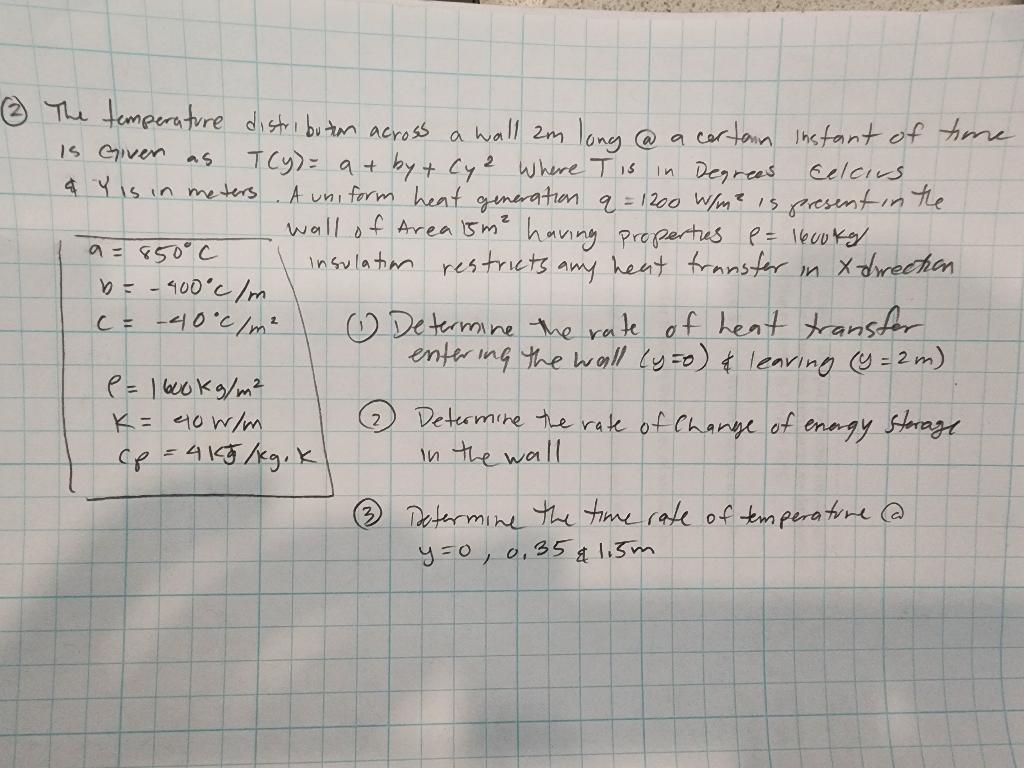 ② The temperature distribution across a wall 2m long @ a certain instant of time
is Given as T(y) = a + by + Cy² Where T is in Degrees Celcius
& Y is in meters. A uniform heat generation q = 1200 W/m² is present in the
wall of Area 15m² having properties ρ = 1600 kg/
insulation restricts any heat transfer in X-direction
a = 850°C
b = -400°C/m
C = -40°C/m²
ρ = 1600 kg/m²
K = 40 W/m
Cρ = 4 KJ/kg.K
① Determine the rate of heat transfer
entering the wall (y=0) & leaving (y=2m)
② Determine the rate of Change of energy Storage
in the wall
③ Determine the time rate of temperature @
y=0, 0.35 & 1.5m